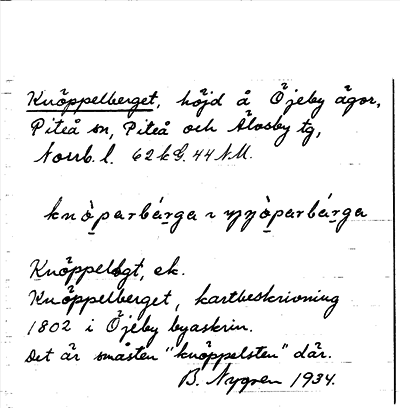 Knöppelberget, höjd å Öjeby ägor,
Piteå sn, Piteå och Älvsby tg,
Norrb. l. 62 k G. 44 N.M.
knò̱parbárga ~ ŋŋò̱parbárga
Knöppelbgt, ek.
Knöppelberget, kartbeskrivning
1802 i Öjeby byaskrin.
Det är småsten "knöppelsten" där.
B. Nygren 1934.